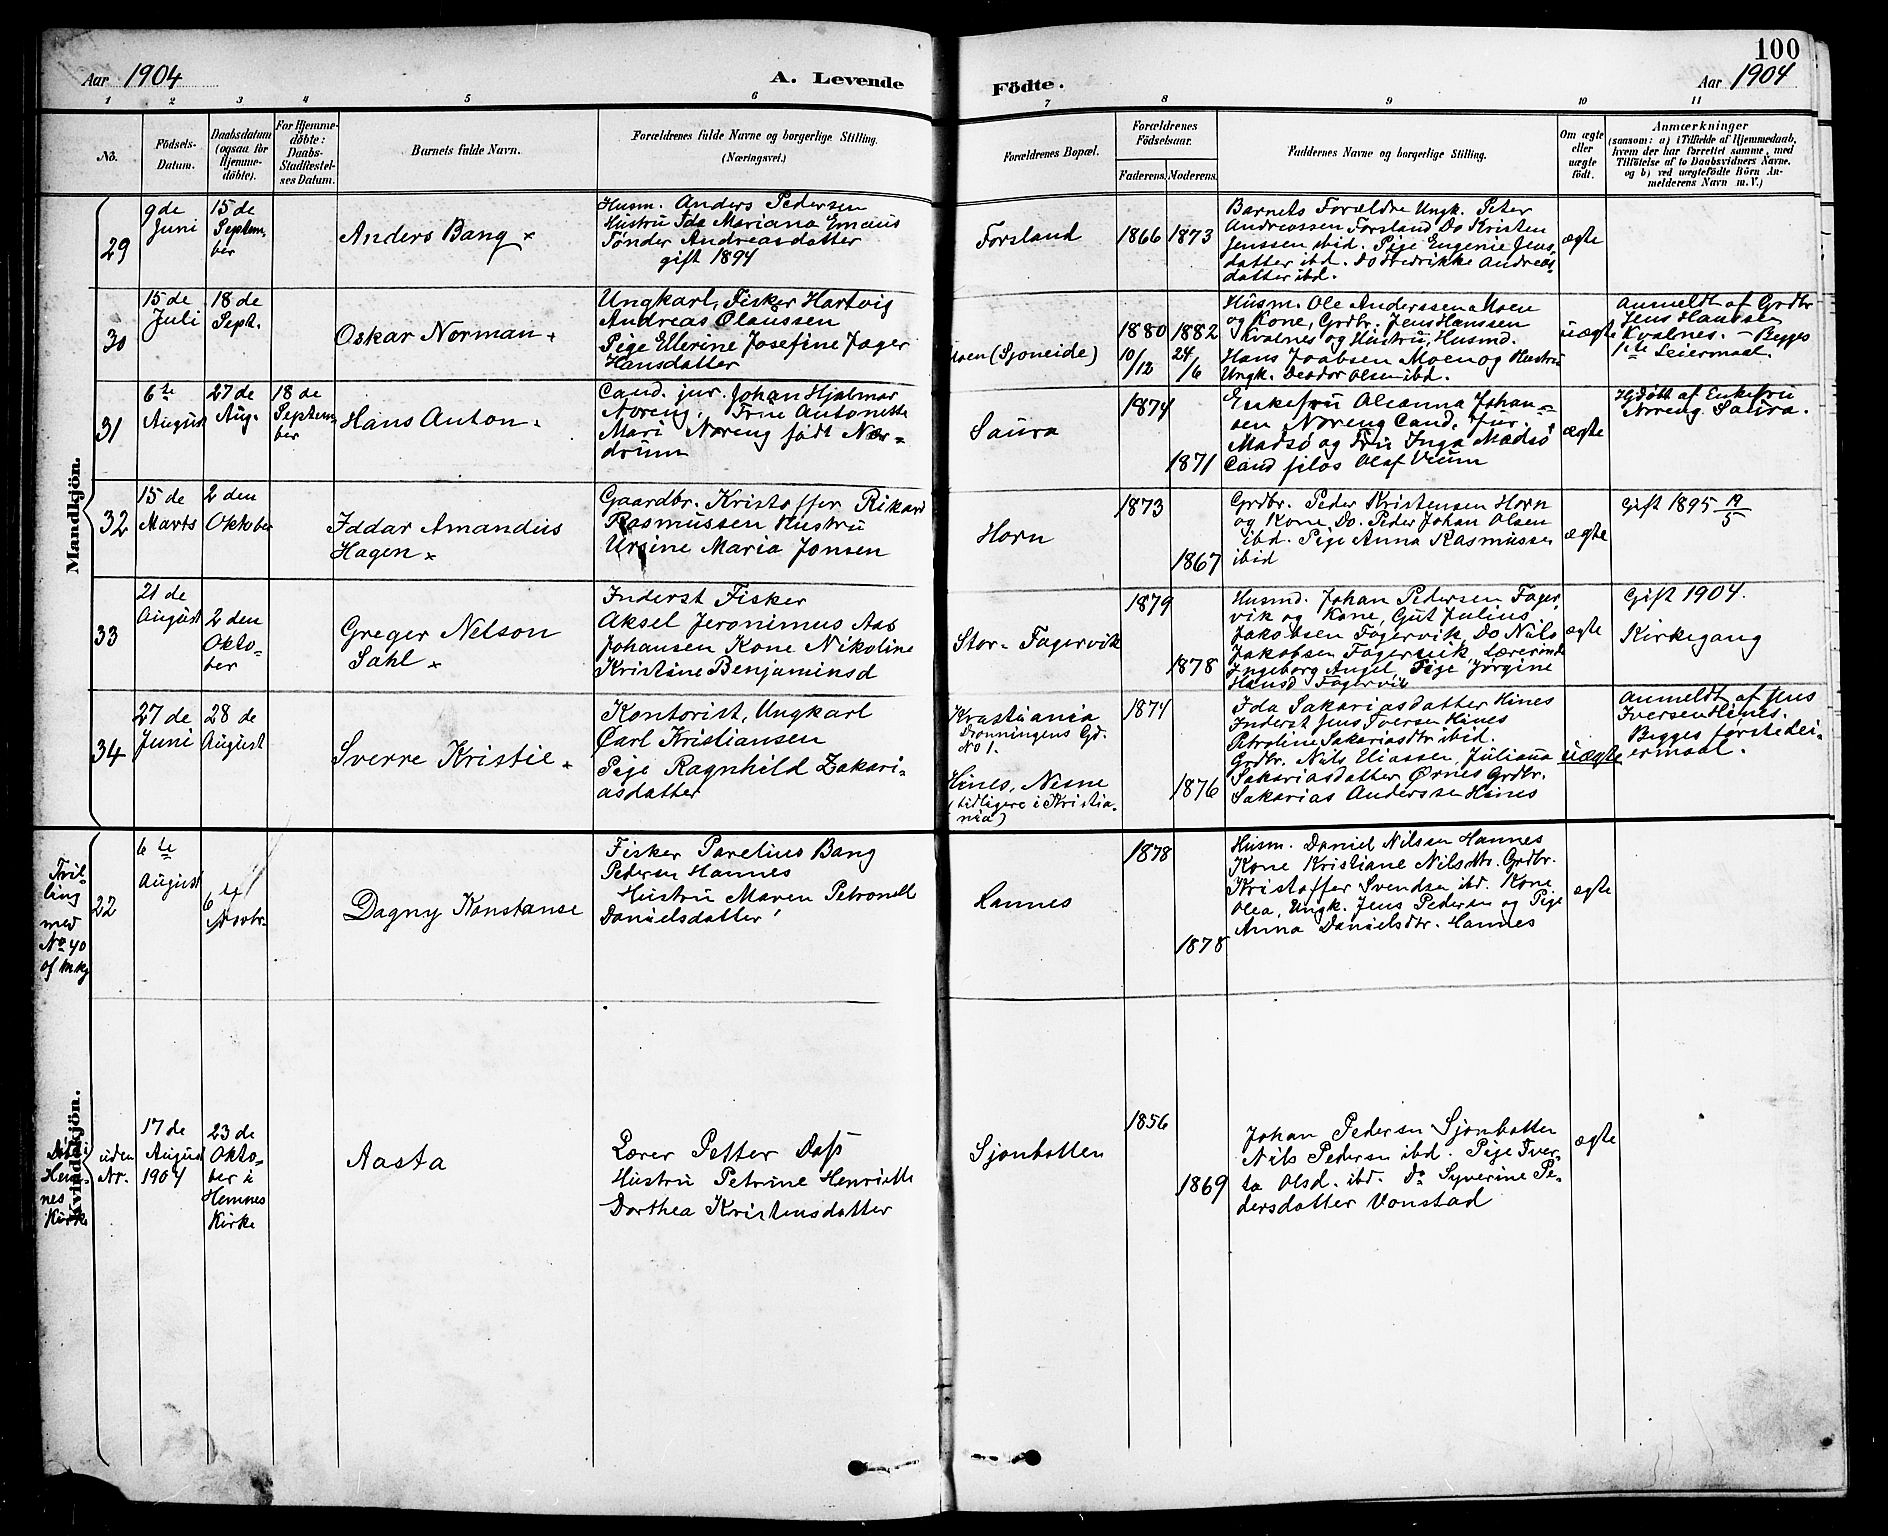 100
Aar 1904
A. Levende
Födte.
Aar 1904
1 2 3 4 5 6 7 8 9 10 11
No.
Födsels-
Datum.
Daabsdatum
(ogsaa for
Hjemme-
döbte).
For Hjemme-
döbte:
Daabs-
Stadfæstel-
ses Datum.
Barnets fulde Navn.
Forældrenes fulde Navne og borgerlige Stilling.
(Næringsvei.)
Forældrenes Bopæl.
Forældrenes
Födselsaar.
Faderens.
Moderens.
Faddernes Navne og borgerlige Stilling.
Om ægte
eller
uægte
födt.
Anmærkninger
(saasom: a) i Tilfælde af Hjemmedaab,
hvem der har forrettet samme, med
Tilföielse af to Daabsvidners Navne,
og b) ved uægtefödte Börn An-
melderens Navn m. V.)
Mandkjön.
29
9de
Juni
15 de
Septem-
ber
Anders Bang
Husm. Anders Pedersen
Hustru Ida Mariana Emaus
Tönder Andreasdatter
gift 1894
Forsland
1866
1873
Barnets Forældre Ungk. Peter
Andreassen Forsland Do Kristen
Jenssen ibid. Pige Eugenie Jens
datter ibd. Do Fredrikke Andreas
datter ibd.
ægte
30
15 de
Juli
18 de
Sept.
Oskar Norman
Ungkarl, Fisker Hartvig
Andreas Olaussen
Pige Ellerine Josefine Jager
Hansdatter
Moen (Sjoneide)
1880
10/12
1882
24/6
Husm. Ole Anderssen Moen
og Kone, Grdbr. Jens Hanssen
Kvalnes og Hustru, Husmd.
Hans Joabsen Moen og Hustru
Ungk. Deodor Olsen ibd.
uægte
Anmeldt af Grdbr
Jens Hanssen
Kvalnes. – Begges
1ste Leiermaal.
31
6te
August
27 de
Aug.
18 de
Septem-
ber
Hans Anton
Cand. jur. Johan Hjalmar
Noreng. Frue Antonette
Mari Noreng födt Nær-
drum
Saura
1874
1871
Enkefru Oleanna Johan-
sen Noreng Cand. Jur.
Madsø og Fru Inga Madsø
Cand filos Olaf Veum
ægte
Hjdöbt af Enkefru
Noreng Saura.
32
15 de
Marts
2 den
Oktober
Iddar Amandus
Hagen
Gaardbr. Kristoffer Rikard
Rasmussen Hustru
Ursine Maria Jonsen
Horn
1873
1867
Grdbr. Peder Kristensen Horn
og Kone, Do. Peder Johan Olsen
ibd. Pige Anna Rasmussen
ibid
ægte
Gift 1895 19/5
33
21 de
August
2 den
Okto-
ber
Greger Nelson
Sahl
Inderst Fisker
Aksel Jeronimus Aas
Johansen Kone Nikoline
Kristine Benjaminsd
Stor-Fagervik
1879
1878
Husmd. Johan Pedersen Fager
vik og Kone, Gut Julius
Jakobsen Fagervik, Do Nils
Jakobsen Fagervik Lærerinde
Ingeborg Angel, Pige Jørgine
Hansd Fagervik
ægte
Gift 1904.
Kirkegang
34
27 de
Juni
28 de
August
Sverre Kristie
Kontorist, Ungkarl
Carl Kristiansen
Pige Ragnhild Zakari-
asdatter
Krastiania
Dronningens Gd.
No 1.
Hines, Nesne
(tidligere i Kristia-
nia)
1874
1876
Ida Sakariasdatter Hines
Inderst Jens Iversen Hines
Petroline Sakariasdtr ibid.
Grdbr. Nils Eliassen, Juliana
Sakariasdatter Ørnes Grdbr.
Sakarias Anderssen Hines
uægte
Anmeldt af Jens
Iversen Hines.
Begges förste Lei-
ermaal.
Kvindekjön.
Tvil-
ling
med
No 40
af Mkj
22
6te
August
6te
Novbr.
Dagny Konstanse
Fisker Parelius Bang
Pedersen Hannes
Hustru Maren Petronelle
Danielsdatter
Hannes
1878
1878
Husm. Daniel Nilsen Hannes
Kone Kristiane Nilsdtr. Grdbr.
Kristoffer Svendsen ibd. Kone
Olea, Ungk. Jens Pedersen og Pige
Anna Danielsdtr. Hannes
ægte
Döbt i
Hem-
nes
Kirke
uden
Nr.
17 de
August
1904
23 de
Okto-
ber i
Hemnes
Kirke
Aasta
Lærer Petter Dass
Hustru Petrine Henriette
Dorthea Kristensdatter
Sjonbotten
1856
1869
Johan Pedersen Sjonbotten
Nils Pedersen ibd. Pige Iver-
ta Olsd. ibd. Do Syverine Pe-
dersdatter Vonstad
ægte